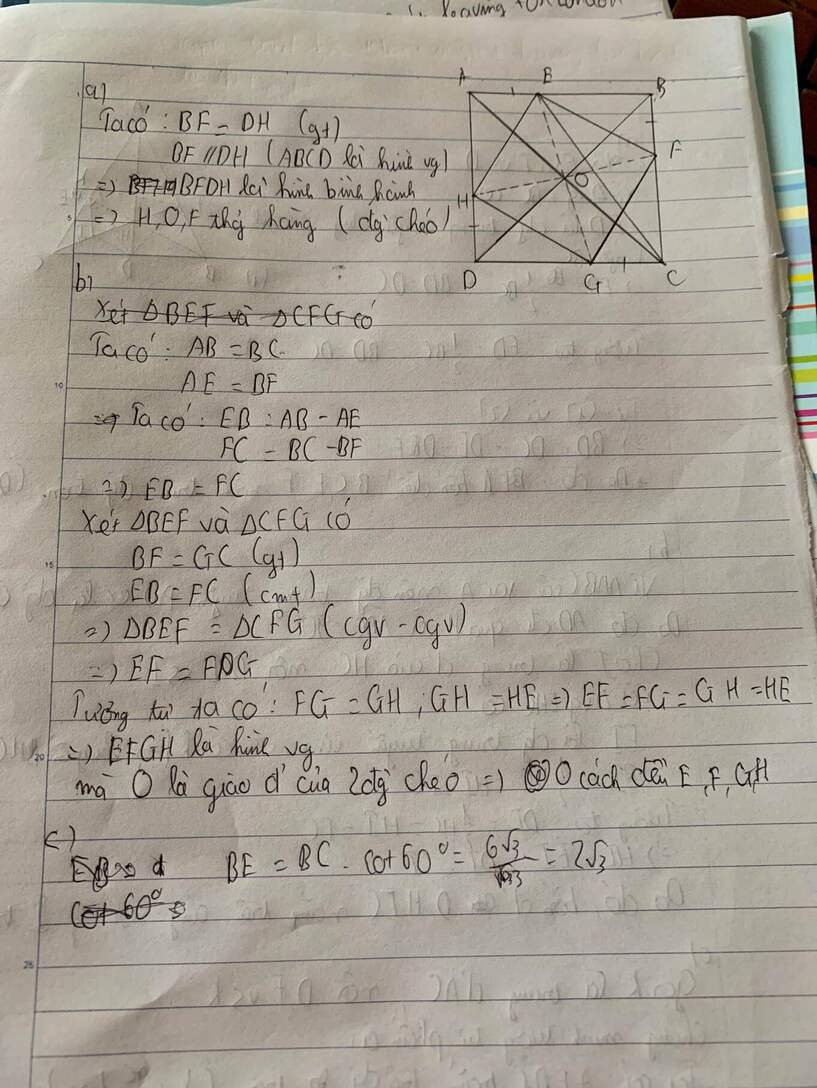 leaving
a)
Ta có : BF = DH (gt)
BF // DH (ABCD là hình vg)
=> BFDH là hình bình hành
=> H, O, F thg hàng (đg chéo)
A E B
F
O
H
D G C
b)
Xét ΔBEF và ΔCFG có
Ta có : AB = BC
AE = BF
=> Ta có : EB = AB - AE
FC = BC - BF
=> EB = FC
Xét ΔBEF và ΔCFG có
BF = GC (gt)
EB = FC (cmt)
=> ΔBEF = ΔCFG (cgv - cgv)
=> EF = FG
Tương tự ta có : FG = GH ; GH = HE => EF = FG = GH = HE
=> EFGH là hình vg
mà O là giao đ' của 2 đg chéo => O cách đều E, F, G, H
c)
BE = BC . cot 60° = 6√3 / 3 = 2√3
cot 60° =
5
10
15
20
25